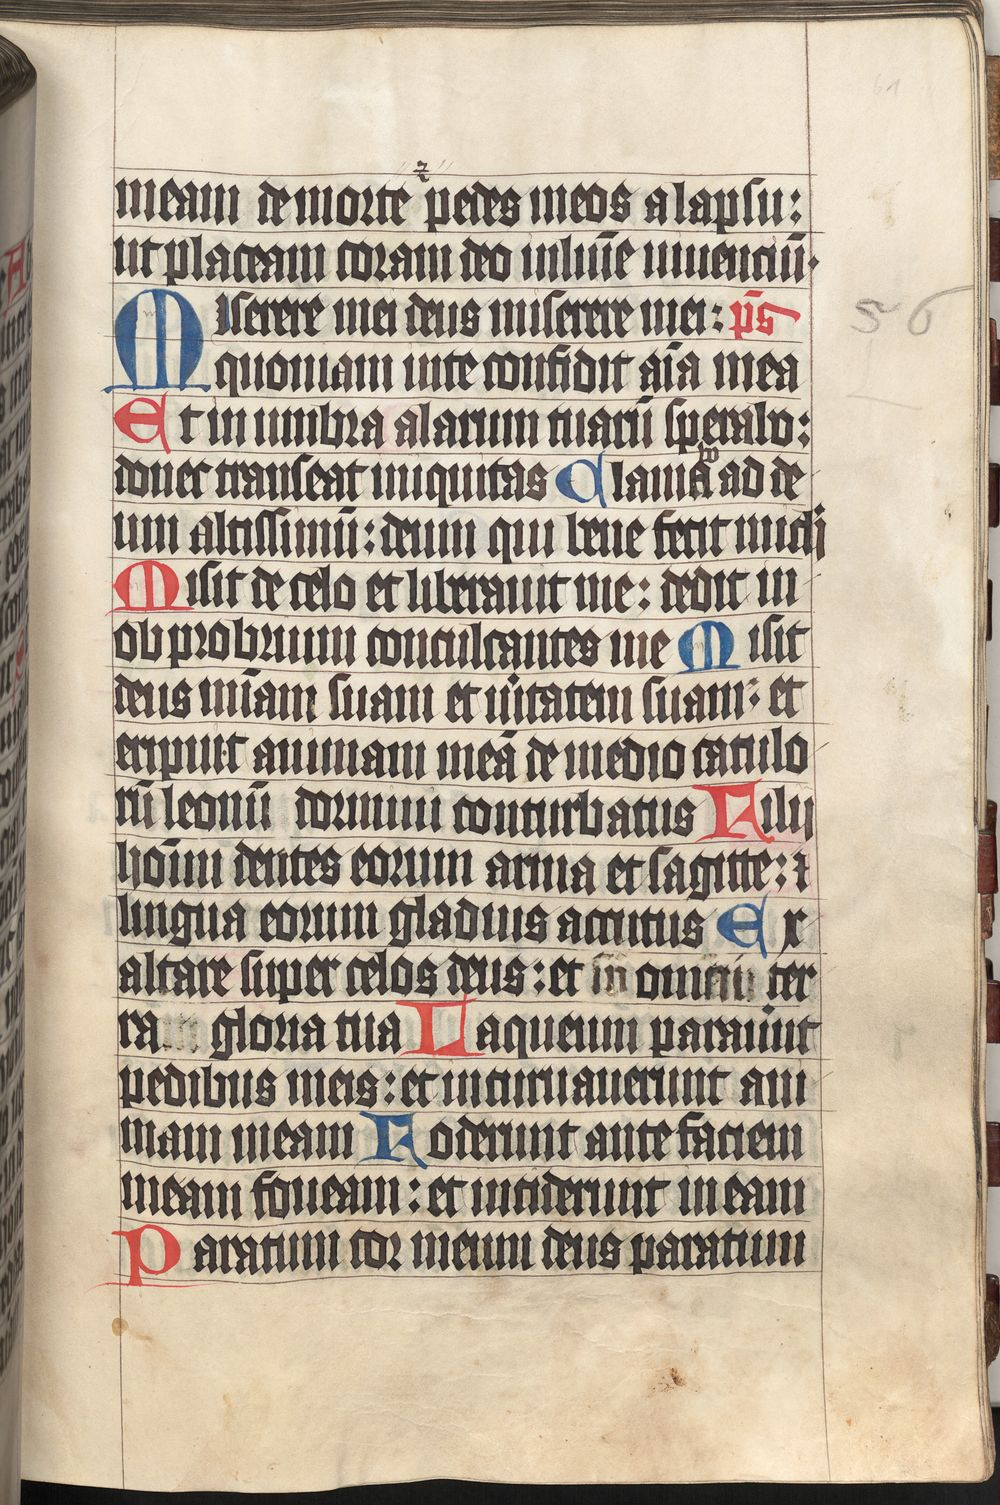 61
meam de morte ⁊ pedes meos a lapsu:
ut placeam coram deo in lumīe uiuenciū.
Miserere mei deus miserere mei: p̄s
quoniam in te confidit aīa mea
56
Et in umbra alarum tuarū sperabo:
donec transeat iniquitas Clamabo ad de
um altissimū: deum qui bene fecit michi
Misit de celo et liberauit me: dedit in
obprobrium conculcantes me Misit
deus mīam suam et ūitatem suam: et
eripuit animam meā de medio catulo
rū leonū dormiui conturbatus Filii
hoīm dentes eorum arma et sagitte: ⁊
lingua eorum gladius acutus Ex
altare super celos deus: et in omnem ter
ram gloria tua Laqueum parauūnt
pedibus meis: et incuruauerunt ani
mam meam Foderunt ante faciem
meam foueam: et inciderunt in eam
Paratum cor meum deus paratum